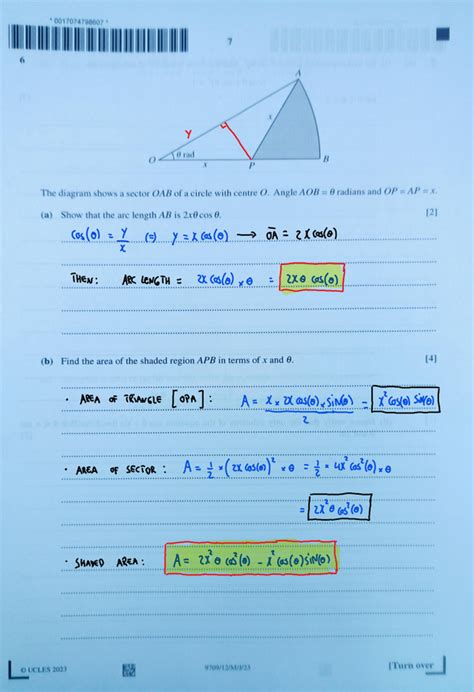 * 0017074798607 *
7
6
A
Y
x
θ rad
O
x
P
B
The diagram shows a sector OAB of a circle with centre O. Angle AOB = θ radians and OP = AP = x.
(a) Show that the arc length AB is 2xθ cos θ. [2]
cos(θ) = y/x (=) y = x cos(θ) → OA = 2x cos(θ)
THEN: ARC LENGTH = 2x cos(θ) × θ = 2xθ cos(θ)
(b) Find the area of the shaded region APB in terms of x and θ. [4]
• AREA OF TRIANGLE [OPA]: A = x × 2x cos(θ) × sin(θ) / 2 = x² cos(θ) sin(θ)
• AREA OF SECTOR: A = 1/2 × (2x cos(θ))² × θ = 1/2 × 4x² cos²(θ) × θ
= 2x² θ cos²(θ)
• SHADED AREA: A = 2x² θ cos²(θ) − x² cos(θ) sin(θ)
© UCLES 2023
9709/12/M/J/23
[Turn over